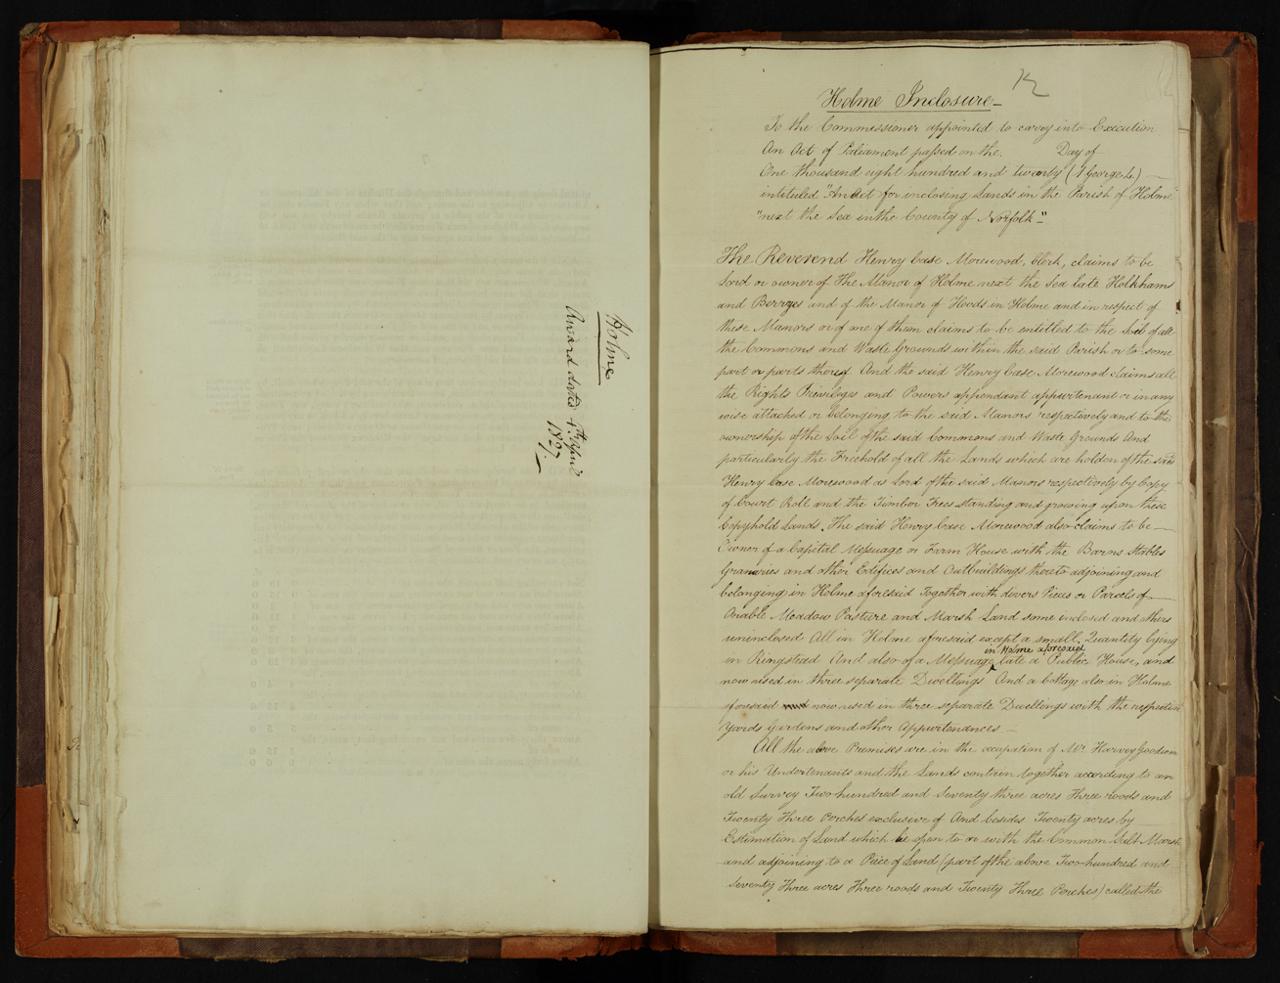 Holme
Award dated 4th April
1827.
12
Holme Inclosure
To the Commissioner appointed to carry into Execution
An Act of Parliament passed on the Day of
One thousand eight hundred and twenty (1 George 4)
intituled "An Act for inclosing Lands in the Parish of Holme
"next the Sea in the County of Norfolk"
The Reverend Henry Case Morewood, Clerk, claims to be
Lord or owner of The Manor of Holme next the Sea late Holkhams
and Berrys and of the Manor of Hoods in Holme and in respect of
these Manors or of one of them claims to be entitled to the Soil of all
the Commons and Waste Grounds within the said Parish or to some
part or parts thereof. And the said Henry Case Morewood claims all
the Rights Privileges and Powers appendant appurtenant or in any
wise attached or belonging to the said Manors respectively and to the
ownership of the Soil of the said Commons and Waste Grounds And
particularly the Freehold of all the Lands which are holden of the said
Henry Case Morewood as Lord of the said Manors respectively by Copy
of Court Roll and the Timber Trees standing and growing upon these
Copyhold Lands. The said Henry Case Morewood also claims to be
Owner of a Capital Messuage or Farm House with the Barns Stables
Granaries and other Edifices and Outbuildings thereto adjoining and
belonging in Holme aforesaid Together with divers Pieces or Parcels of
Arable Meadow Pasture and Marsh Land some inclosed and others
uninclosed All in Holme aforesaid except a small Quantity lying
in Ringstead And also of a Messuage late a Public House, and
in Holme aforesaid
now used in three separate Dwellings And a Cottage also in Holme
aforesaid now used in three separate Dwellings with the respective
Yards Gardens and other Appurtenances
All the above Premises are in the occupation of Mr. Harvey Goodson
or his Undertenants and the Lands contain together according to an
old Survey Two hundred and Seventy three acres Three roods and
Twenty Three Perches exclusive of And besides Twenty acres by
Estimation of Land which lie open to or with the Common Salt Marsh
and adjoining to a Piece of Land (part of the above Two hundred and
Seventy Three acres Three roods and Twenty Three Perches) called the